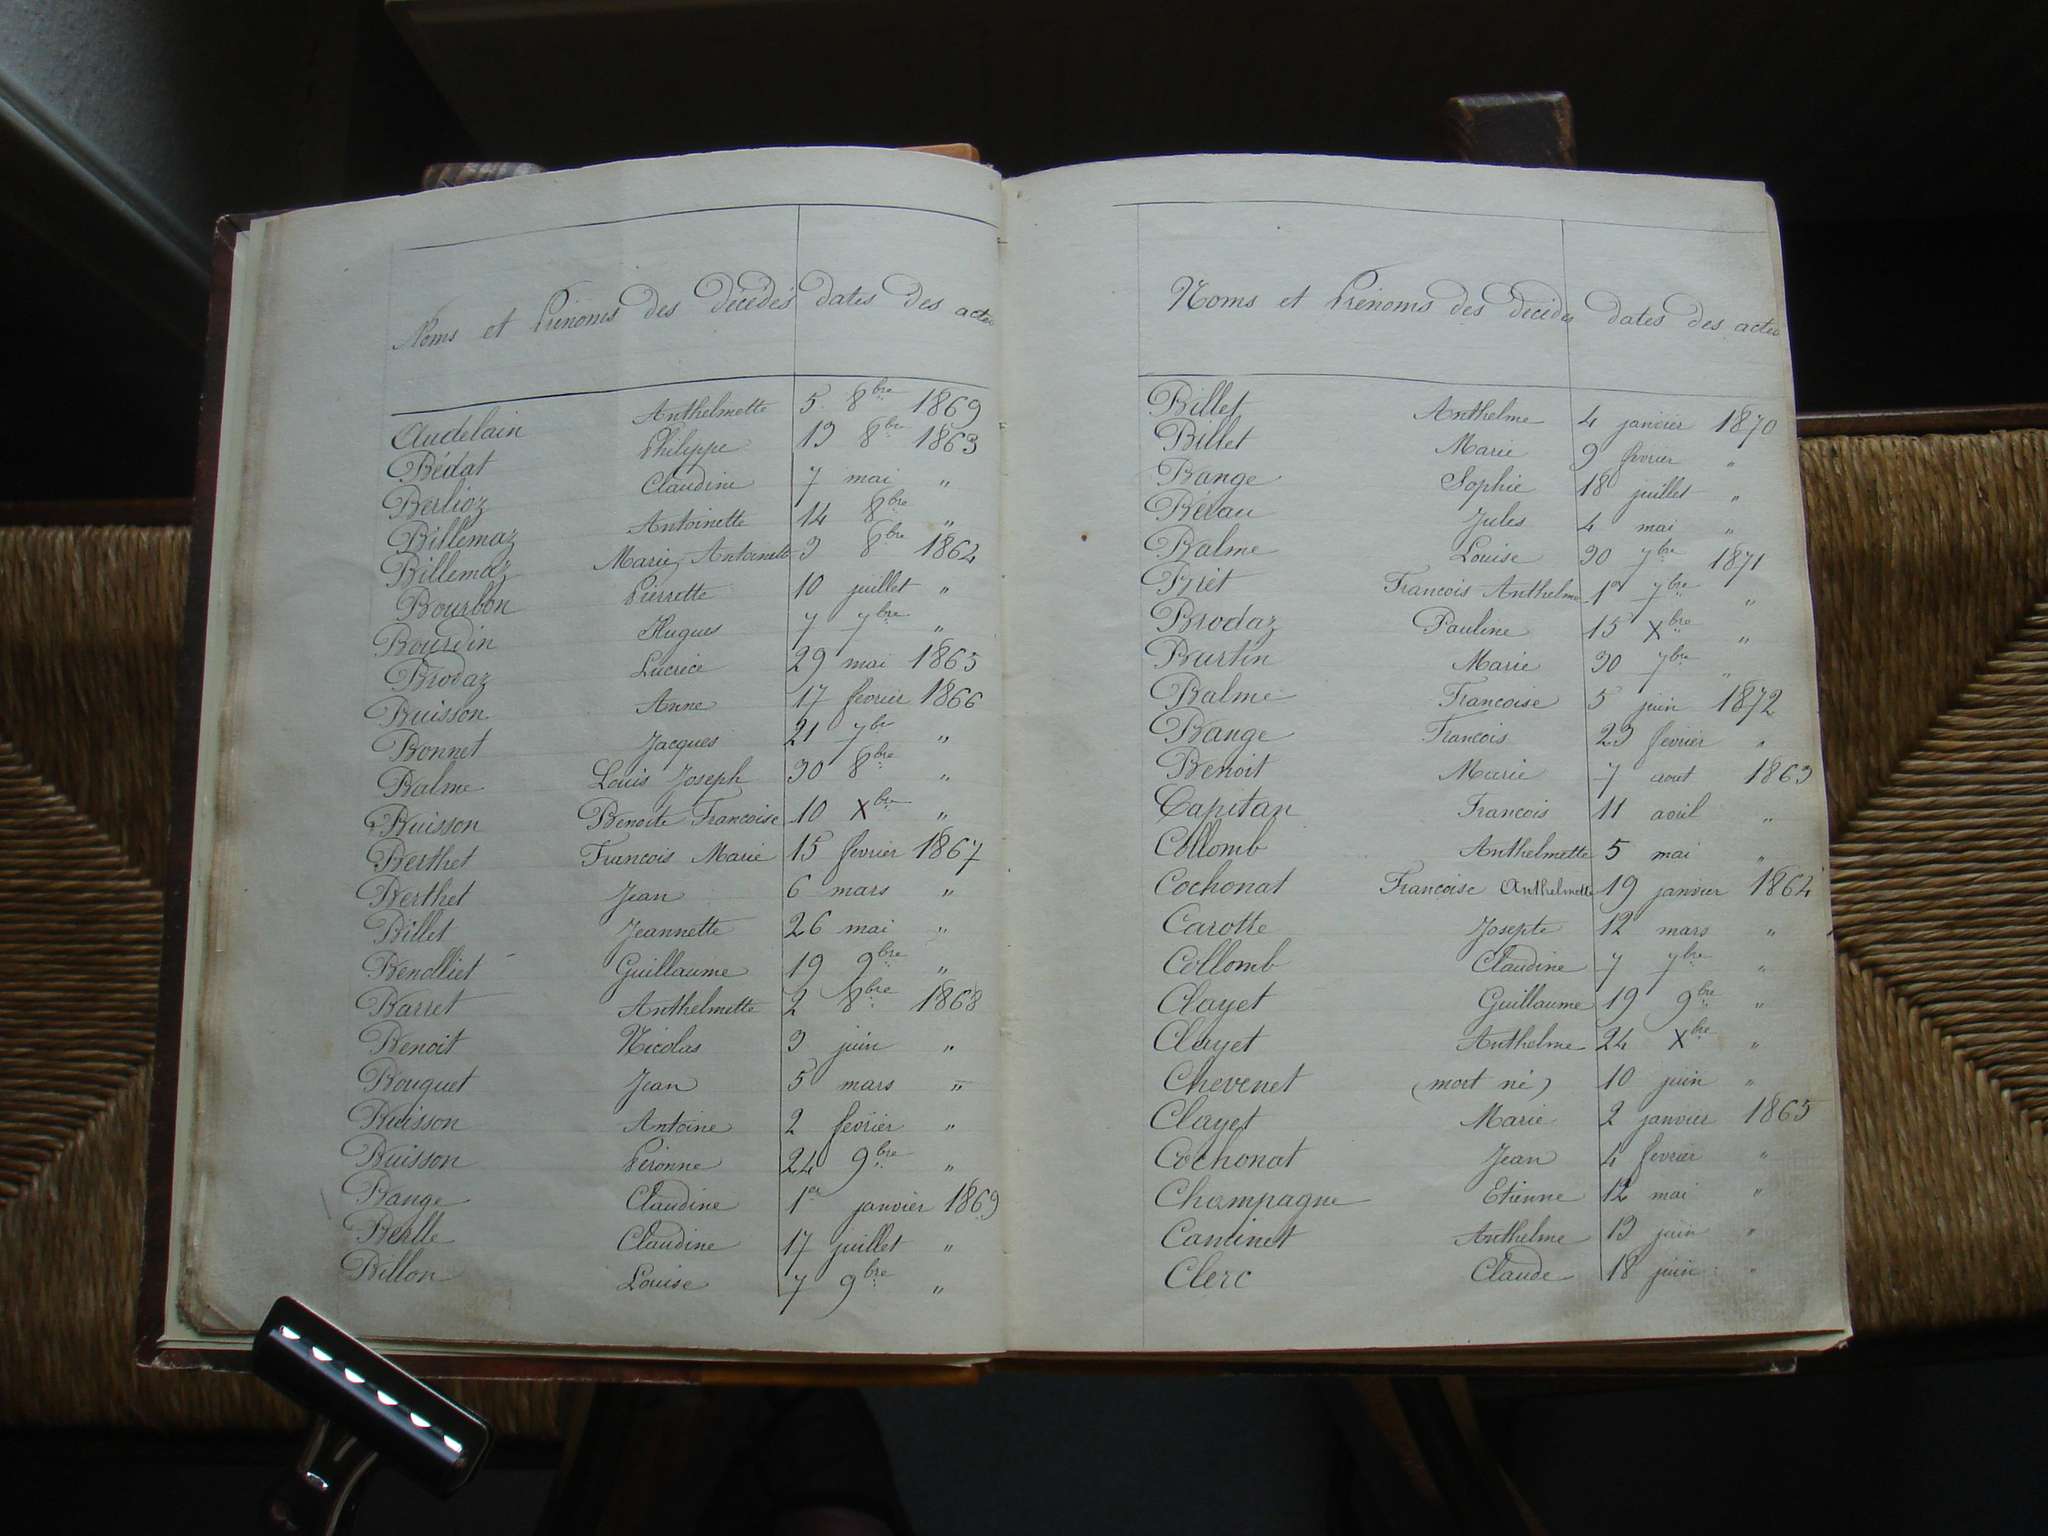 Noms et Prénoms des décédés dates des actes
Audelain Anthelmette 5 8bre 1869
Bédat Philippe 13 8bre 1863
Berlioz Claudine 7 mai "
Billemaz Antoinette 14 8bre "
Billemaz Marie Antoinette 3 8bre 1864
Bourbon Pierrette 10 juillet "
Bourdin Hugues 7 7bre "
Brodaz Lucrèce 29 mai 1865
Buisson Anne 17 fevrier 1866
Bonnet Jacques 21 7bre "
Balme Louis Joseph 30 8bre "
Buisson Benoite Francoise 10 Xbre "
Berthet Francois Marie 15 fevrier 1867
Berthet Jean 6 mars "
Billet Jeannette 26 mai "
Benolliet Guillaume 19 9bre "
Barret Anthelmette 2 8bre 1868
Benoit Nicolas 3 juin "
Bouquet Jean 5 mars "
Buisson Antoine 2 fevrier "
Buisson Péronne 24 9bre "
Bange Claudine 1er janvier 1869
Berlle Claudine 17 juillet "
Billon Louise 7 9bre "
Noms et Prénoms des décédés dates des actes
Billet Anthelme 4 janvier 1870
Billet Marie 9 fevrier "
Bange Sophie 18 juillet "
Jules 4 mai "
Balme Louise 30 7bre 1871
Francois Anthelme 1er 7bre "
Brodaz Pauline 15 Xbre "
Burtin Marie 30 7bre "
Balme Francoise 5 juin 1872
Bange Francois 23 fevrier "
Benoit Marie 7 aout 1863
Capitan Francois 11 avril "
Collomb Anthelmette 5 mai "
Cochonat Francoise Anthelmette 19 janvier 1864
Carotte Josepte 12 mars "
Collomb Claudine 7 7bre "
Clayet Guillaume 19 9bre "
Clayet Anthelme 24 Xbre "
Chevenet (mort né) 10 juin "
Clayet Marie 2 janvier 1865
Cochonat Jean 4 fevrier "
Champagne Etienne 12 mai "
Cantinet Anthelme 13 juin "
Clerc Claude 18 juin "